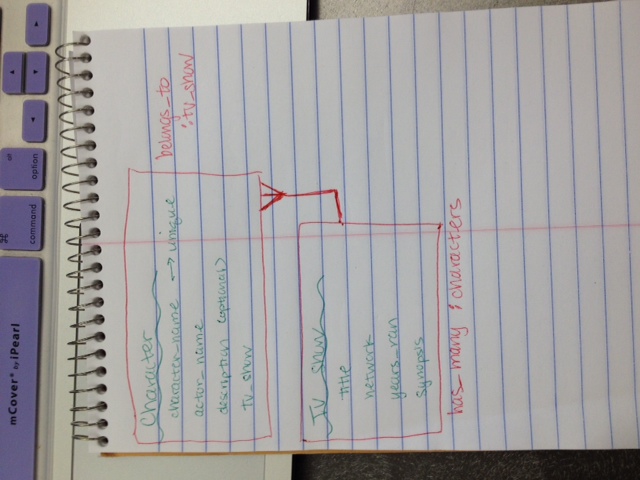 mCover® by iPearl
⌘
command
option
Character
character_name ↔ unique
actor_name
description (optional)
tv_show
belongs_to
:tv_show
TV show
title
network
years_ran
synopsis
has_many :characters